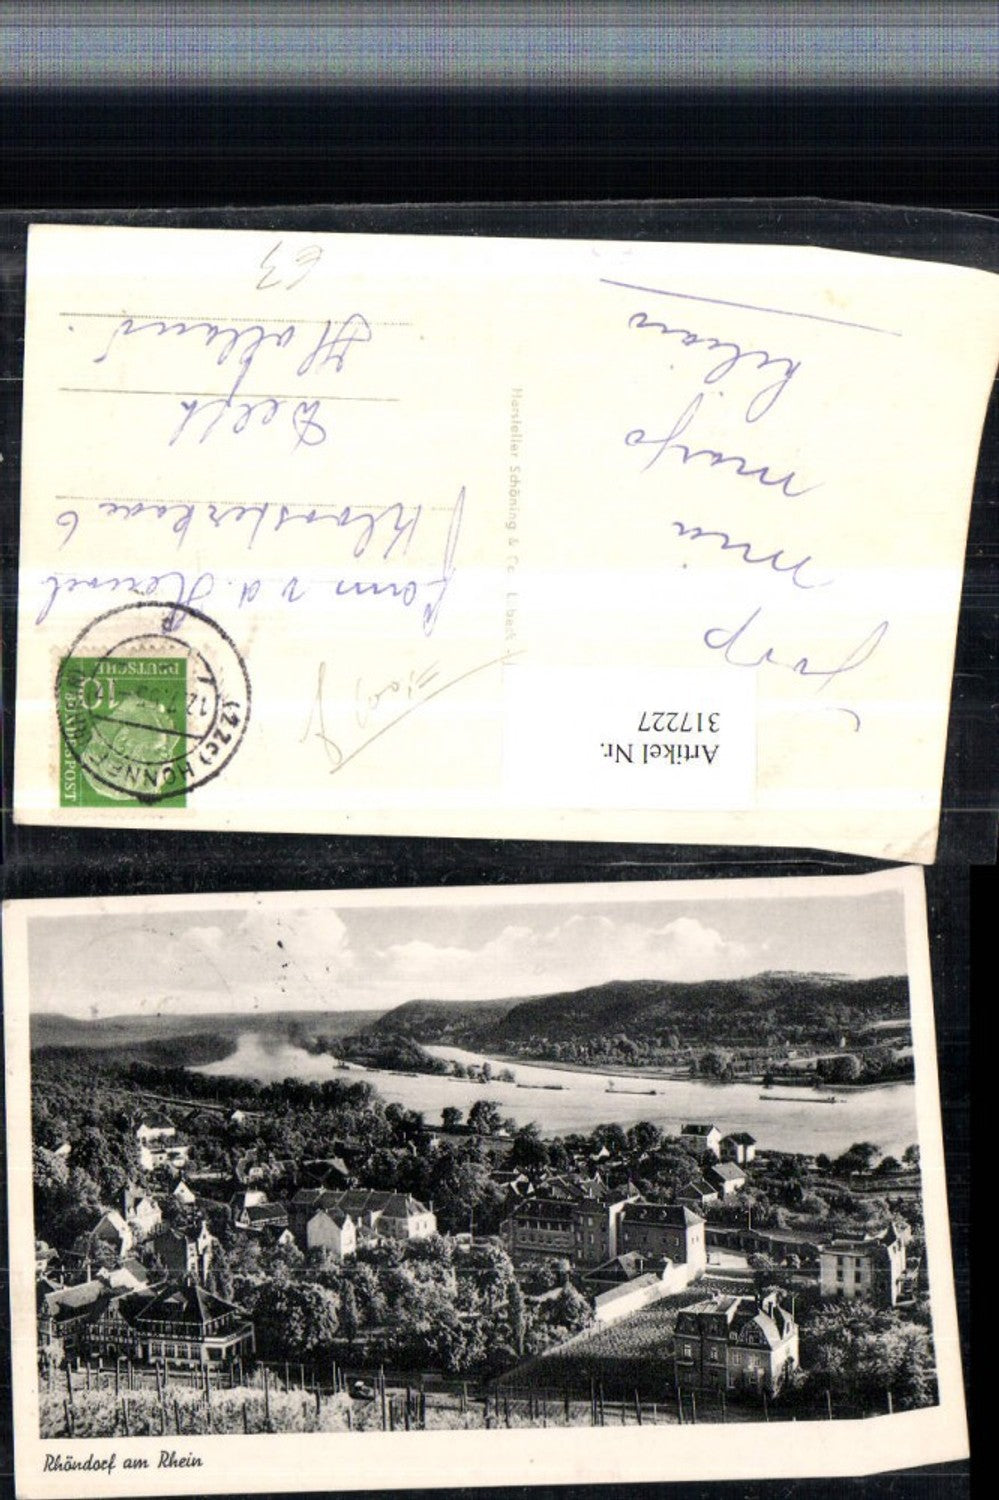 Joop
mia
marjo
Fam v. d. Heuvel
Kloosterkade 6
Delft
Holland
63
Hersteller Schöning & Co. L beck
DEUTSCHE
BUNDESPOST
10
(22c) HONNEF
Artikel Nr.
317227
Rhöndorf am Rhein